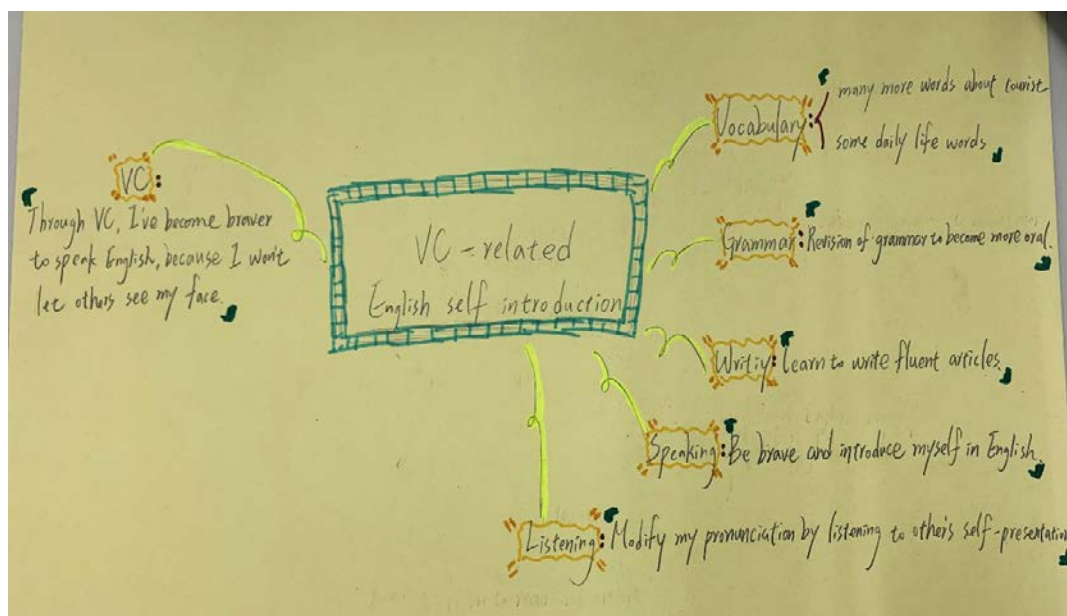 VC:
Through VC, I've become braver
to speak English, because I won't
let others see my face.
VC-related
English self introduction
Vocabulary:
many more words about tourist
some daily life words
Grammar: Revision of grammar to become more oral.
Writiy: Learn to write fluent articles.
Speaking: Be brave and introduce myself in English.
Listening: Modify my pronunciation by listening to others self-presentation